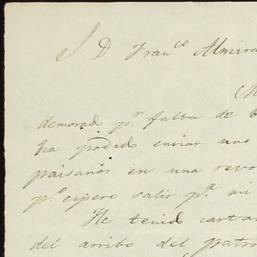 S. D Fran.co Almira
demorad pr falta de
ha podid enviar uno
paisanos en una rev
pr espero salir pr mi
He tenid carta
del arribo del patro